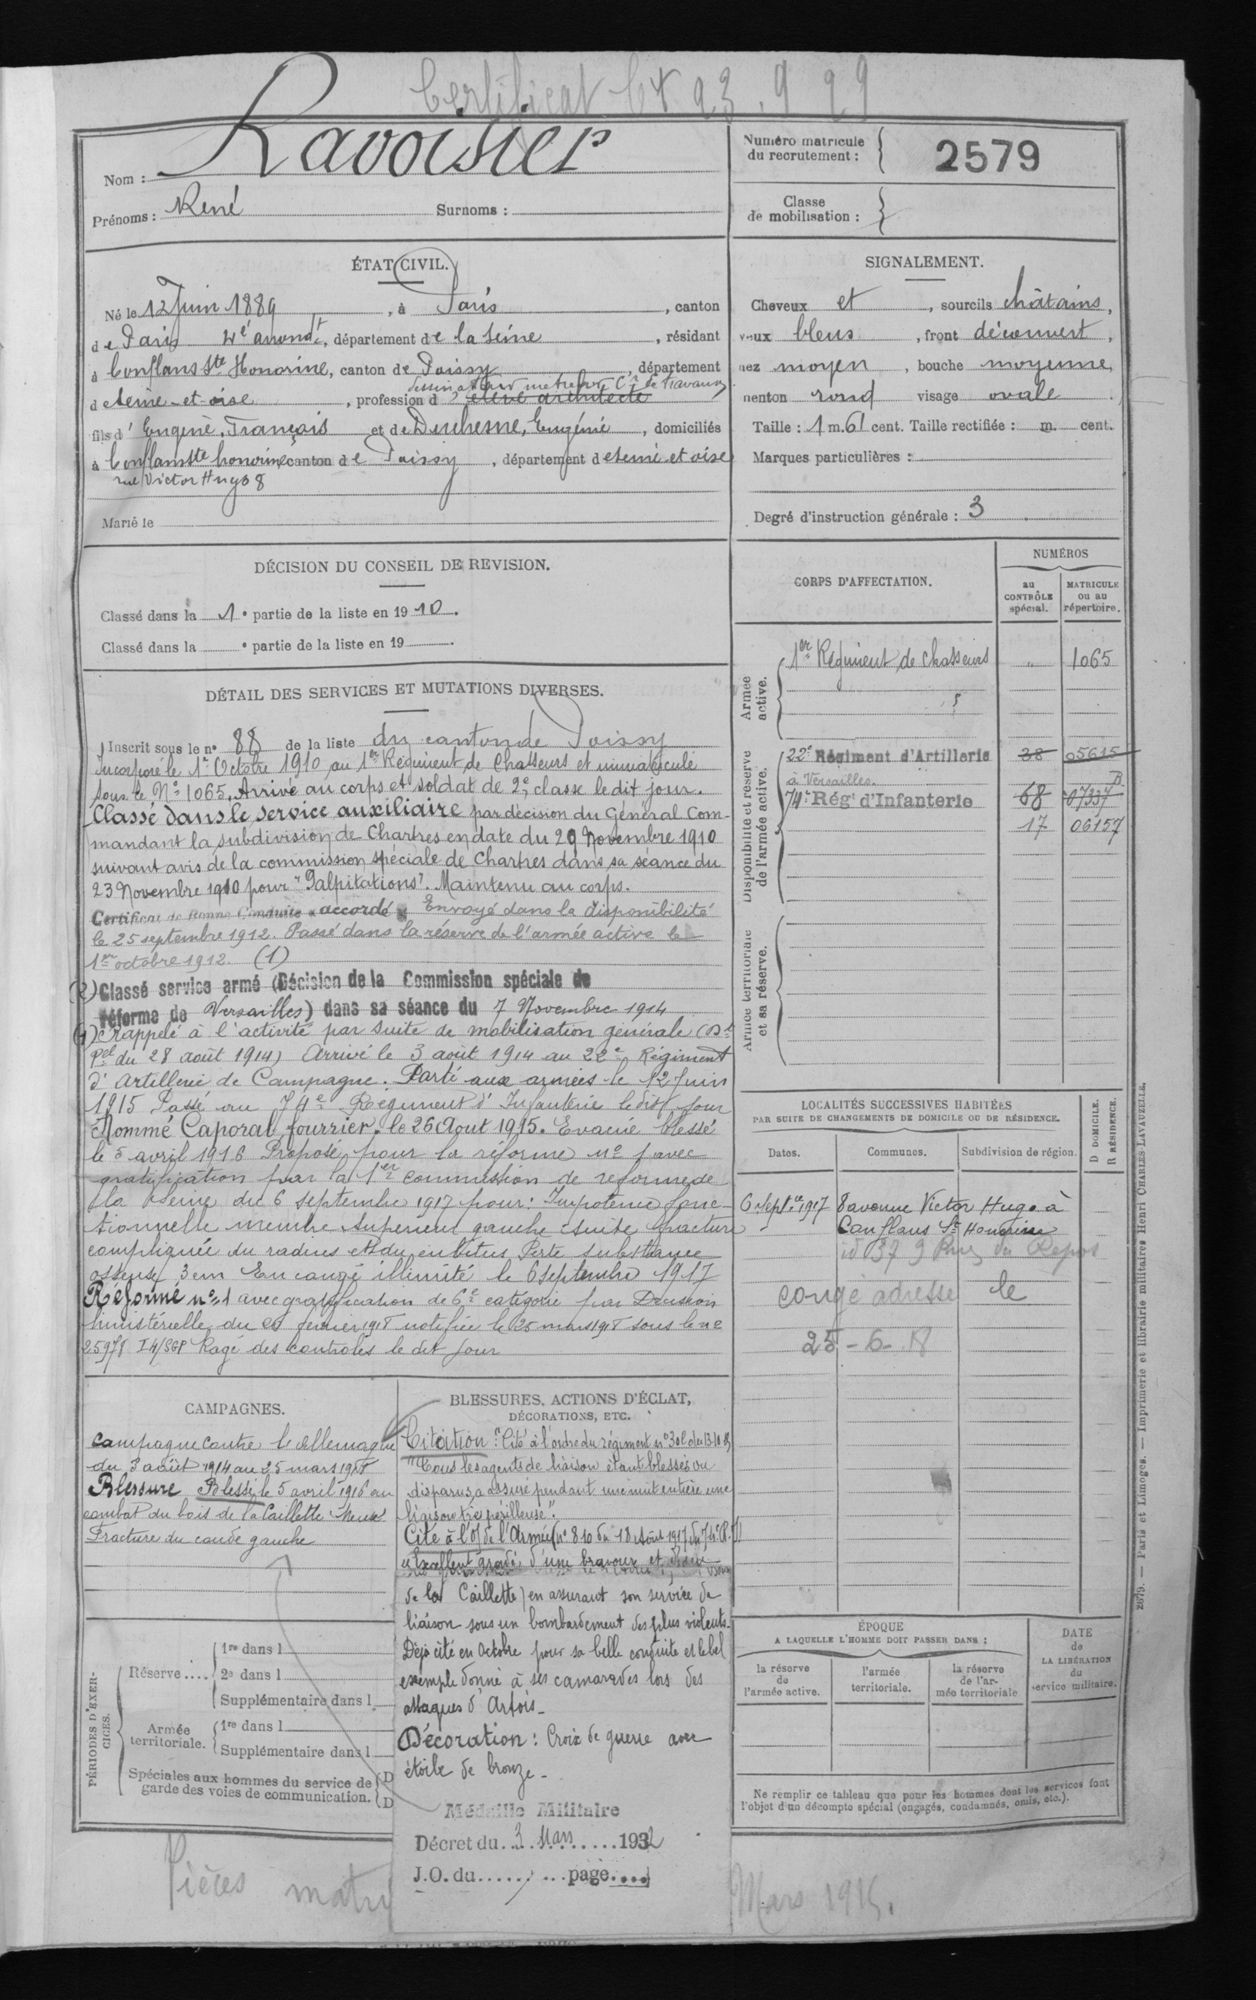 Certificat Ct 23.9.29
Nom : Lavoisier
Prénoms : René Surnoms :
Numéro matricule
du recrutement : 2579
Classe
de mobilisation :
ÉTAT CIVIL.
Né le 12 Juin 1889, à Paris, canton
de Paris 4e arrondt, département de la Seine, résidant
à Conflans Ste Honorine, canton de Poissy, département
dessinateur metreur Cie de Travaux
de Seine-et-oise, profession d'élève architecte
fils d'Eugène, François et de Duchesne, Eugénie, domiciliés
à Conflans Ste honorine canton de Poissy, département de Seine et oise
rue Victor Hugo 8
Marié le
SIGNALEMENT.
Cheveux et, sourcils châtains,
yeux bleus, front découvert,
nez moyen, bouche moyenne,
menton rond visage ovale.
Taille : 1 m. 61 cent. Taille rectifiée : m. cent.
Marques particulières :
Degré d'instruction générale : 3
DÉCISION DU CONSEIL DE REVISION.
Classé dans la 1e partie de la liste en 1910.
Classé dans la e partie de la liste en 19
DÉTAIL DES SERVICES ET MUTATIONS DIVERSES.
Inscrit sous le no 88 de la liste du canton de Poissy
Incorporé le 1er Octobre 1910 au 1er Régiment de Chasseurs et immatriculé
sous le No 1065. Arrivé au corps et soldat de 2e classe le dit jour.
Classé dans le service auxiliaire par décision du Général Com-
mandant la subdivision de Chartres en date du 29 Novembre 1910
suivant avis de la commission spéciale de Chartres dans sa séance du
23 Novembre 1910 pour "Palpitations". Maintenu au corps.
Certificat de Bonne Conduite "accordé" Envoyé dans la disponibilité
le 25 septembre 1912. Passé dans la réserve de l'armée active le
1er octobre 1912. (1)
(2) Classé service armé (Décision de la Commission spéciale de
réforme de Versailles) dans sa séance du 7 Novembre 1914
(1) Rappelé à l'activité par suite de mobilisation générale (Dt
Pel du 28 août 1914) Arrivé le 3 août 1914 au 22e Régiment
d'Artillerie de Campagne. Parti aux armées le 12 Juin
1915 Passé au 74e Régiment d'Infanterie le dit jour
Nommé Caporal fourrier. le 26 Aout 1915. Evacué blessé
le 5 avril 1916 Proposé pour la réforme no 1 avec
gratification par la 1er commission de réforme de
la Seine du 6 septembre 1917 pour: Impotence fonc-
tionnelle membre supérieur gauche suite fracture
compliquée du radius et du cubitus Perte substance
osseuse 3cm En congé illimité le 6 septembre 1917
Réformé no 1 avec gratification de 6e catégorie par Decision
ministérielle du février 1918 notifiée le 25 mars 1918 sous le no
25978 I4/SGP Rayé des controles le dit jour
CORPS D'AFFECTATION.
NUMÉROS
au
CONTRÔLE
spécial.
MATRICULE
ou au
répertoire.
Armée
active.
1er Régiment de Chasseurs " 1065
Disponibilité et réserve
de l'armée active.
22e Régiment d'Artillerie 38 05615
à Versailles.
74e Régt d'Infanterie 68 07337 B
17 06157
Armée territoriale
et sa réserve.
LOCALITÉS SUCCESSIVES HABITÉES
PAR SUITE DE CHANGEMENTS DE DOMICILE OU DE RÉSIDENCE.
D DOMICILE.
R RÉSIDENCE.
Dates. Communes. Subdivision de région.
6 Septbre 1917 8 avenue Victor Hugo à
Conflans Ste Honorine
Rue du Repos
congé adressé le
25-6-18
CAMPAGNES.
Campagne contre l'Allemagne
du 3 août 1914 au 25 mars 1918
Blessure Blessé le 5 avril 1916 au
combat du bois de la Caillette Meuse
Fracture du coude gauche
BLESSURES, ACTIONS D'ÉCLAT,
DÉCORATIONS, ETC.
Citation: "Cité à l'ordre du régiment no 301 du 13.10.15
"Tous les agents de liaison étant blessés ou
disparus, a assuré pendant une nuit entière une
liaison très périlleuse".
Cité à l'O/ de l'Armée (no 810 du 18 Août 1917 du 74e R.I)
"Excellent gradé, d'une bravoure et
de la Caillette) en assurant son service de
liaison sous un bombardement des plus violents.
Déjà cité en Octobre pour sa belle conduite et le bel
exemple donné à ses camarades lors des
attaques d'Artois.
Décoration : Croix de guerre avec
étoile de bronze.
Médaille Militaire
Décret du 3 Mars 1932
J.O. du page
PÉRIODES D'EXER-
CICES.
Réserve
1re dans l
2e dans l
Supplémentaire dans l
Armée
territoriale.
1re dans l
Supplémentaire dans l
Spéciales aux hommes du service de
garde des voies de communication.
D
D
ÉPOQUE
A LAQUELLE L'HOMME DOIT PASSER DANS :
la réserve
de
l'armée active.
l'armée
territoriale.
la réserve
de l'ar-
mée territoriale
DATE
de
LA LIBÉRATION
du
service militaire.
Ne remplir ce tableau que pour les hommes dont les services font
l'objet d'un décompte spécial (engagés, condamnés, omis, etc.).
2679. — Paris et Limoges. — Imprimerie et librairie militaires Henri CHARLES-LAVAUZELLE.
Pièces matri
Mars 1915.